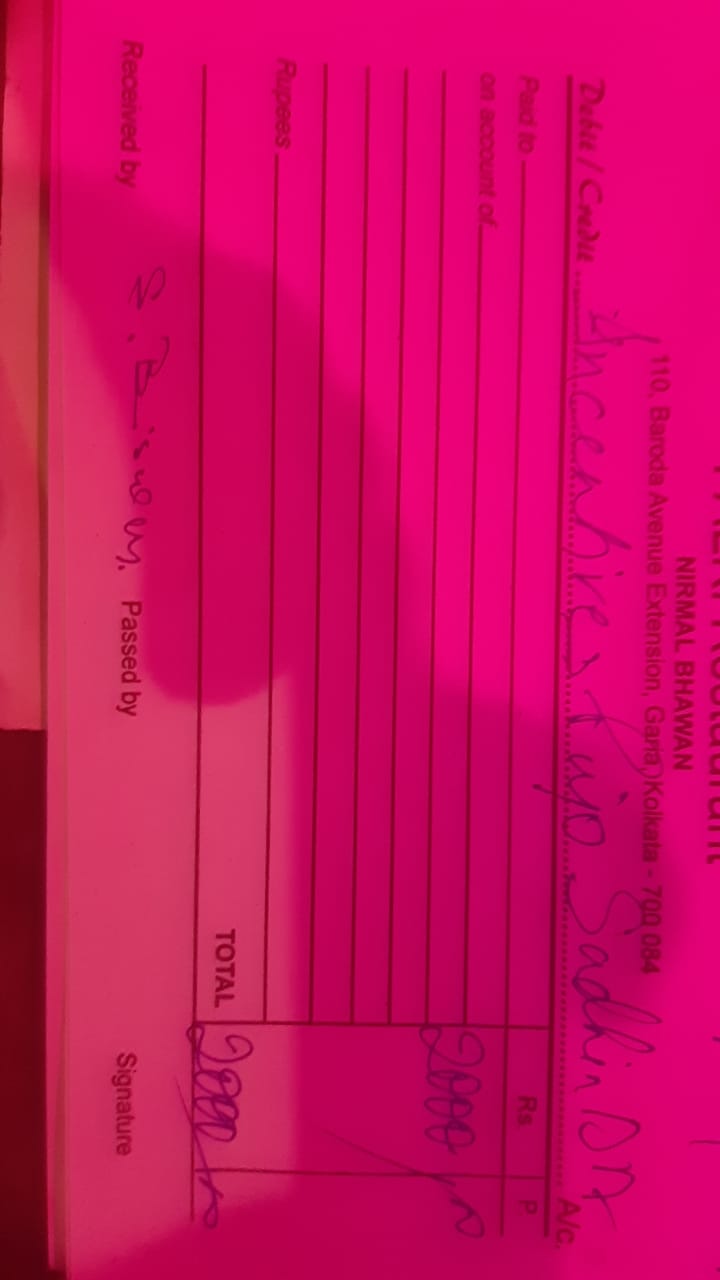 NIRMAL BHAWAN
110, Baroda Avenue Extension, Garia, Kolkata - 700 084
Debit / Credit Incentive Pujo Sadhin A/c.
Paid to
Rs. P
on account of
2000
Rupees
TOTAL 2000
Received by S. Biswas. Passed by Signature